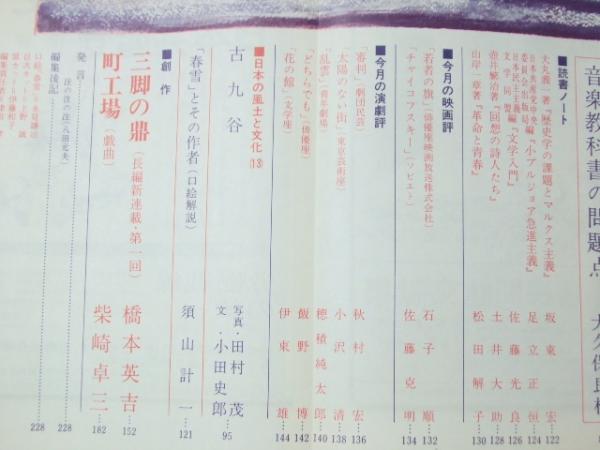 音楽教科書の問題点
■読書ノート
犬丸義一著『歴史学の課題とマルクス主義』 坂東宏…122
日本共産党中央委員会出版局編『小ブルジョア急進主義』 足立正恒…124
日本民主主義文学同盟編『文学入門』 佐藤光良…126
壺井繁治著『回想の詩人たち』 土井大助…128
山岸一章著『革命と青春』 松田解子…130
■今月の映画評
「若者の旗」(俳優座映画放送株式会社) 石子順…132
「チャイコフスキー」(ソビエト) 佐藤克明…134
■今月の演劇評
「審判」(劇団民芸) 秋村宏…136
「太陽のない街」(東京芸術座) 小沢清…138
「乱雲」(青年劇場) 穂積純太郎…140
「どちらでも」(俳優座) 飯野博…142
「花の館」(文学座) 伊東雄…144
■日本の風土と文化(13)
古九谷 写真・田村茂 文・小田史郎…95
「春雪」とその作者(口絵解説) 須山計一…121
■創作
三脚の鼎(長編新連載・第一回) 橋本英吉…152
町工場(戯曲) 柴崎卓三…182
発言…228
編集後記…228